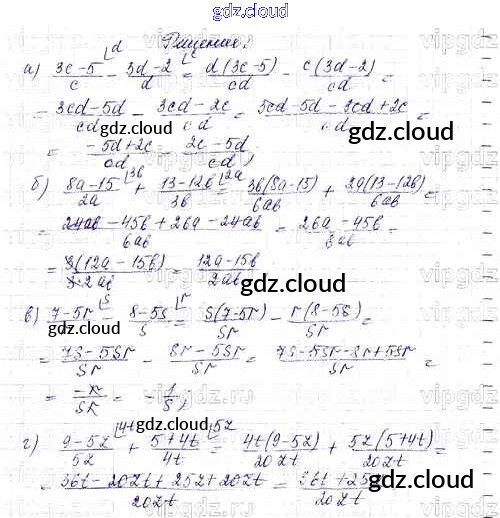 gdz.cloud
gdz.cloud
Решение:
а) (3c-5)/c - (3d-2)/d = d(3c-5)/cd - c(3d-2)/cd =
= (3cd-5d)/cd - (3cd-2c)/cd = (3cd-5d-3cd+2c)/cd =
gdz.cloud
gdz.cloud
= (-5d+2c)/cd = (2c-5d)/cd;
б) (8a-15)/2a + (13-12b)/3b = 3b(8a-15)/6ab + 2a(13-12b)/6ab =
= (24ab-45b+26a-24ab)/6ab = (26a-45b)/6ab =
gdz.cloud
= 3(12a-15b)/3·2ab = (12a-15b)/2ab
gdz.cloud
в) (7-5r)/r - (8-5s)/s = s(7-5r)/sr - r(8-5s)/sr =
gdz.cloud
= (7s-5sr)/sr - (8r-5sr)/sr = (7s-5sr-8r+5sr)/sr =
gdz.cloud
г) (9-5z)/5z + (5+4t)/4t = 4t(9-5z)/20zt + 5z(5+4t)/20zt =
gdz.cloud
= (36t-20zt+25z+20zt)/20zt = (36t+25
gdz.cloud